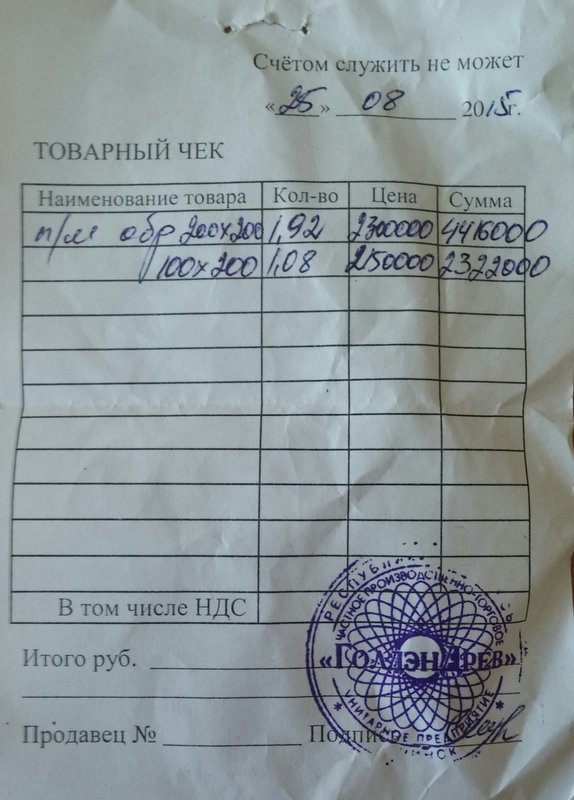 Счётом служить не может
«25» 08 2015г.
ТОВАРНЫЙ ЧЕК
Наименование товара Кол-во Цена Сумма
п/м обр 200х200 1,92 2300000 4416000
100х200 1,08 2150000 2322000
В том числе НДС
Итого руб.
Продавец № Подпись
РЕСПУБЛИ
ЧАСТНОЕ ПРОИЗВОДСТВЕННО-ТОРГОВОЕ
«ГОЛДЭНДРЕВ»
УНИТАРНОЕ ПРЕДПРИЯТИЕ
МИНСК